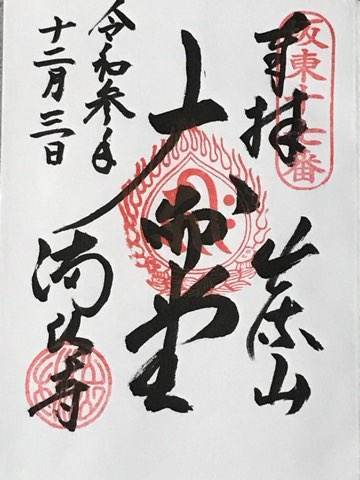 坂東十七番
奉拝
出流山
大御堂
令和参年
十二月三日
満願寺